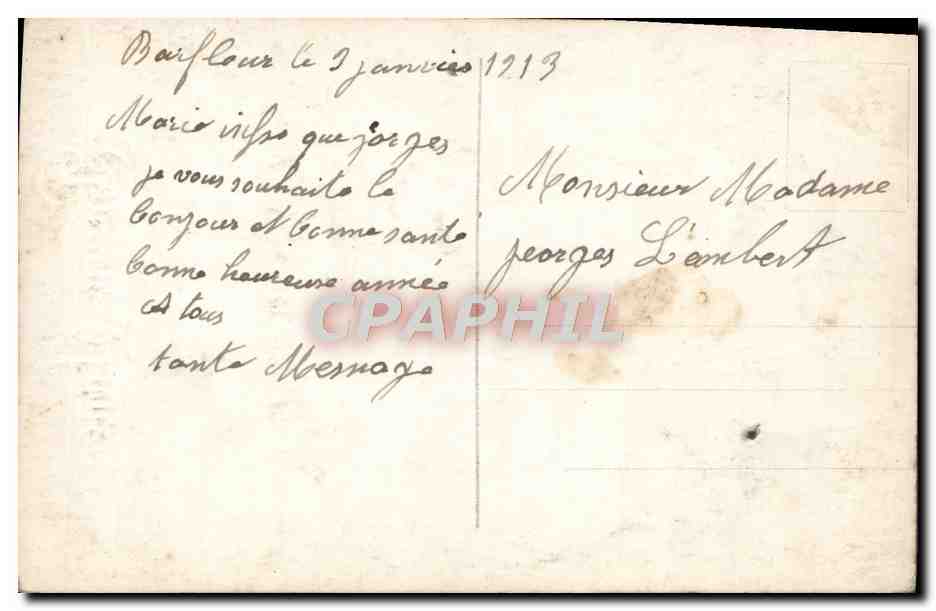 Barfleur le 3 janvier 1913
Marie que jorges
je vous souhaite le
bonjour et bonne santé
bonne heureuse année
A tous
tante Mesnage
Monsieur Madame
jeorges Lembert
CPAPHIL